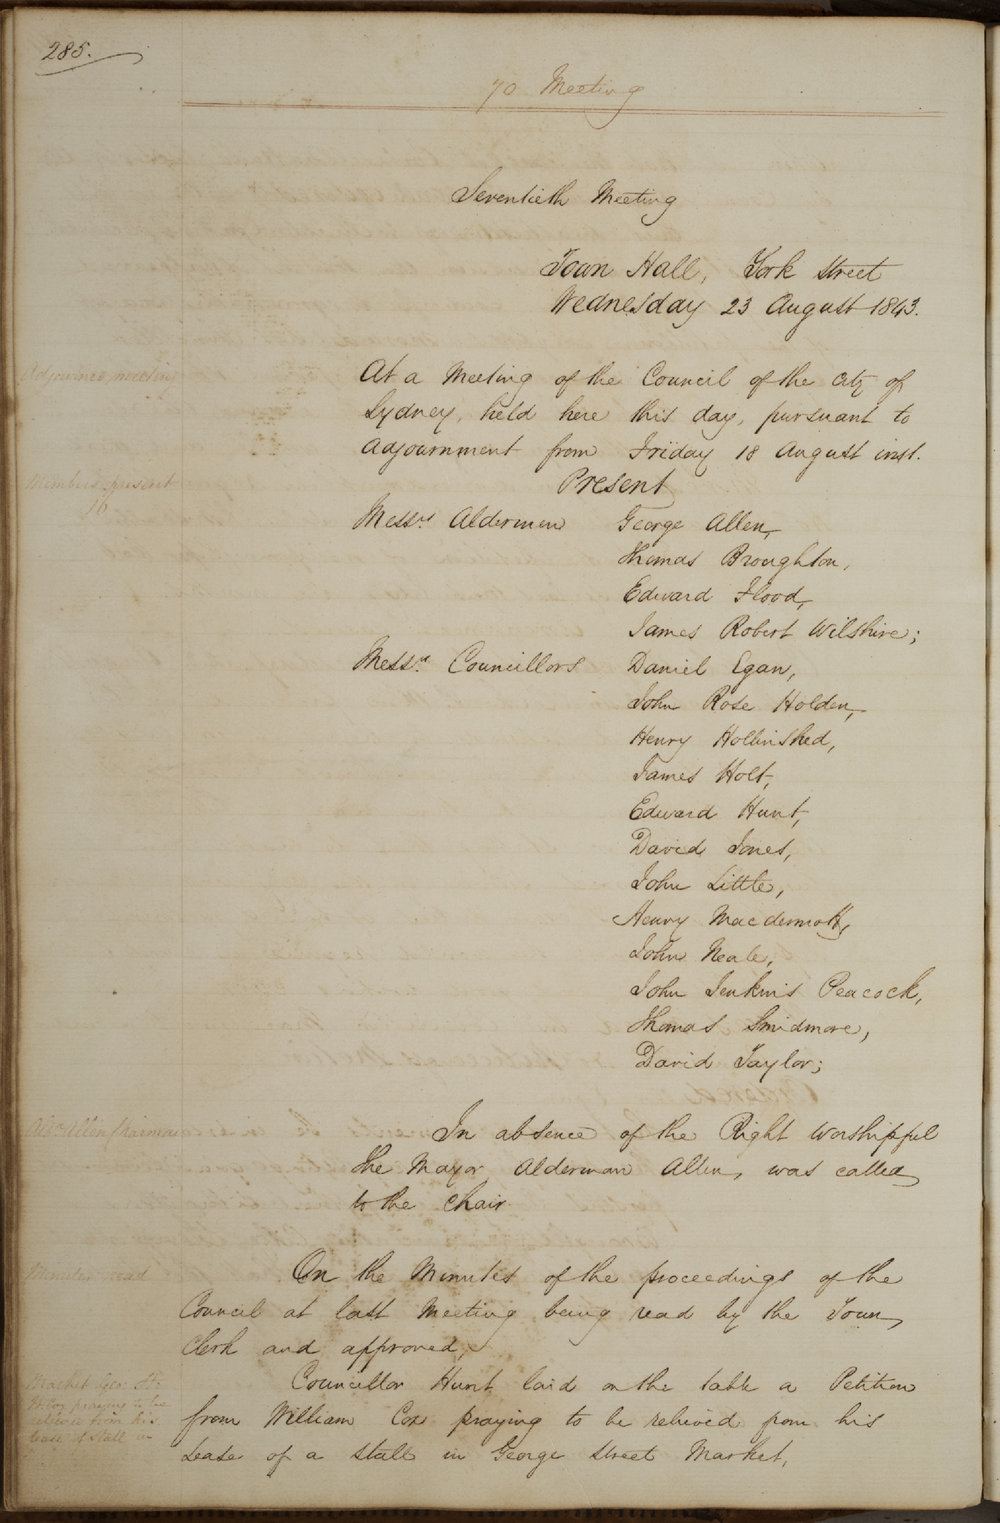 285.
70 Meeting
Seventieth Meeting
Town Hall, York Street
Wednesday 23 August 1843.
Adjourned meeting
At a Meeting of the Council of the City of
Sydney, held here this day, pursuant to
Adjournment from Friday 18 August inst.
Members present
16
Present
Messrs Aldermen George Allen,
Thomas Broughton,
Edward Flood,
James Robert Wilshire;
Messrs Councillors Daniel Egan,
John Rose Holden,
Henry Hollinshed,
James Holt,
Edward Hunt,
David Jones,
John Little,
Henry Macdermott,
John Neale,
John Jenkins Peacock,
Thomas Smidmore,
David Taylor;
Aldn Allen Chairman
In absence of the Right Worshipful
the Mayor Alderman Allen, was called
to the Chair.
Minutes read
On the Minutes of the proceedings of the
Council at last Meeting being read by the Town
Clerk and approved,
Market Geo: St:
praying to be
relieved from his
lease of Stall in
Councillor Hunt laid on the table a Petition
from William Cox praying to be relieved from his
Lease of a Stall in George Street Market,